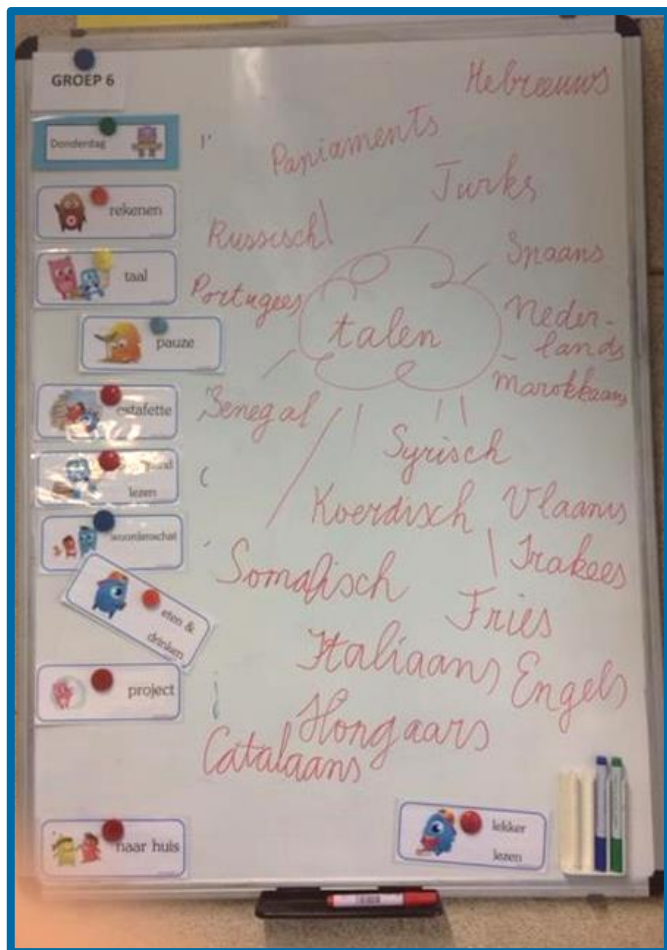 GROEP 6
Donderdag
rekenen
taal
pauze
estafette
lezen
woordenschat
eten &
drinken
project
naar huis
lekker
lezen
Hebreeuws
Papiaments
Turks
Russisch
Spaans
Portugees
talen
Neder-
lands
Marokkaans
Senegal
Syrisch
Koerdisch
Vlaams
Irakees
Somalisch
Fries
Italiaans
Engels
Hongaars
Catalaans